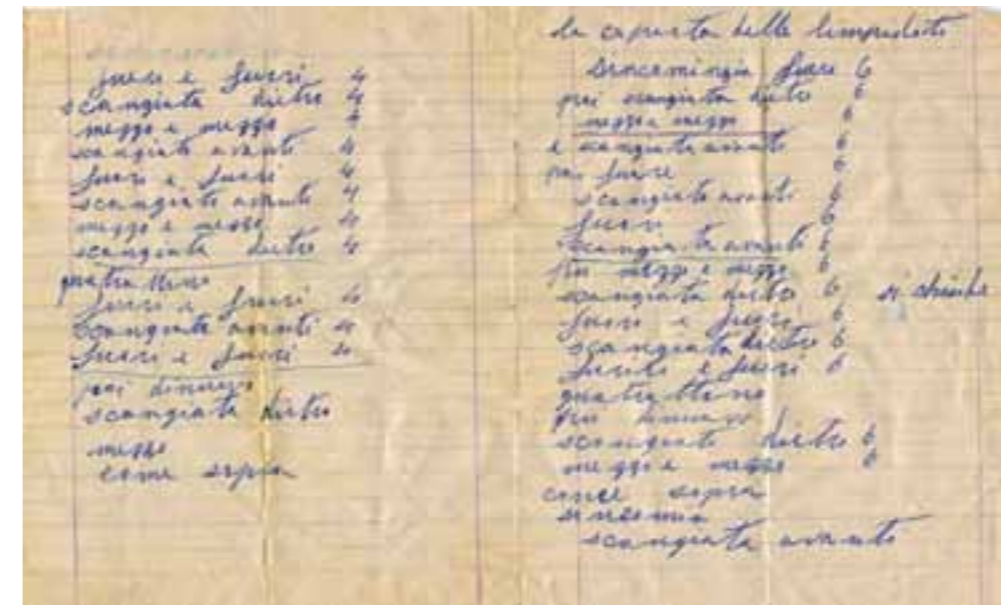 fuori e fuori 4
scangiata dietro 4
mezzo e mezzo 4
scangiata avanti 4
fuori e fuori 4
scangiata avanti 4
mezzo e mezzo 4
scangiata dietro 4
quatrattino
fuori e fuori 4
scangiata avanti 4
fuori e fuori 4
poi dinuovo
scangiata dietro
mezzo
come sopra
la coperta delle
sincomingia fuori 6
poi scangiata dietro 6
mezzo e mezzo 6
e scangiata avanti 6
poi fuore 6
scangiata avanti 6
fuori 6
scangiata avanti 6
poi mezzo e mezzo 6
scangiata dietro 6 si chiude
fuori e fuori 6
scangiata dietro 6
fuori e fuori 6
quatrattino
poi dinuovo
scangiata dietro 6
mezzo e mezzo 6
come sopra
scangiata avanti